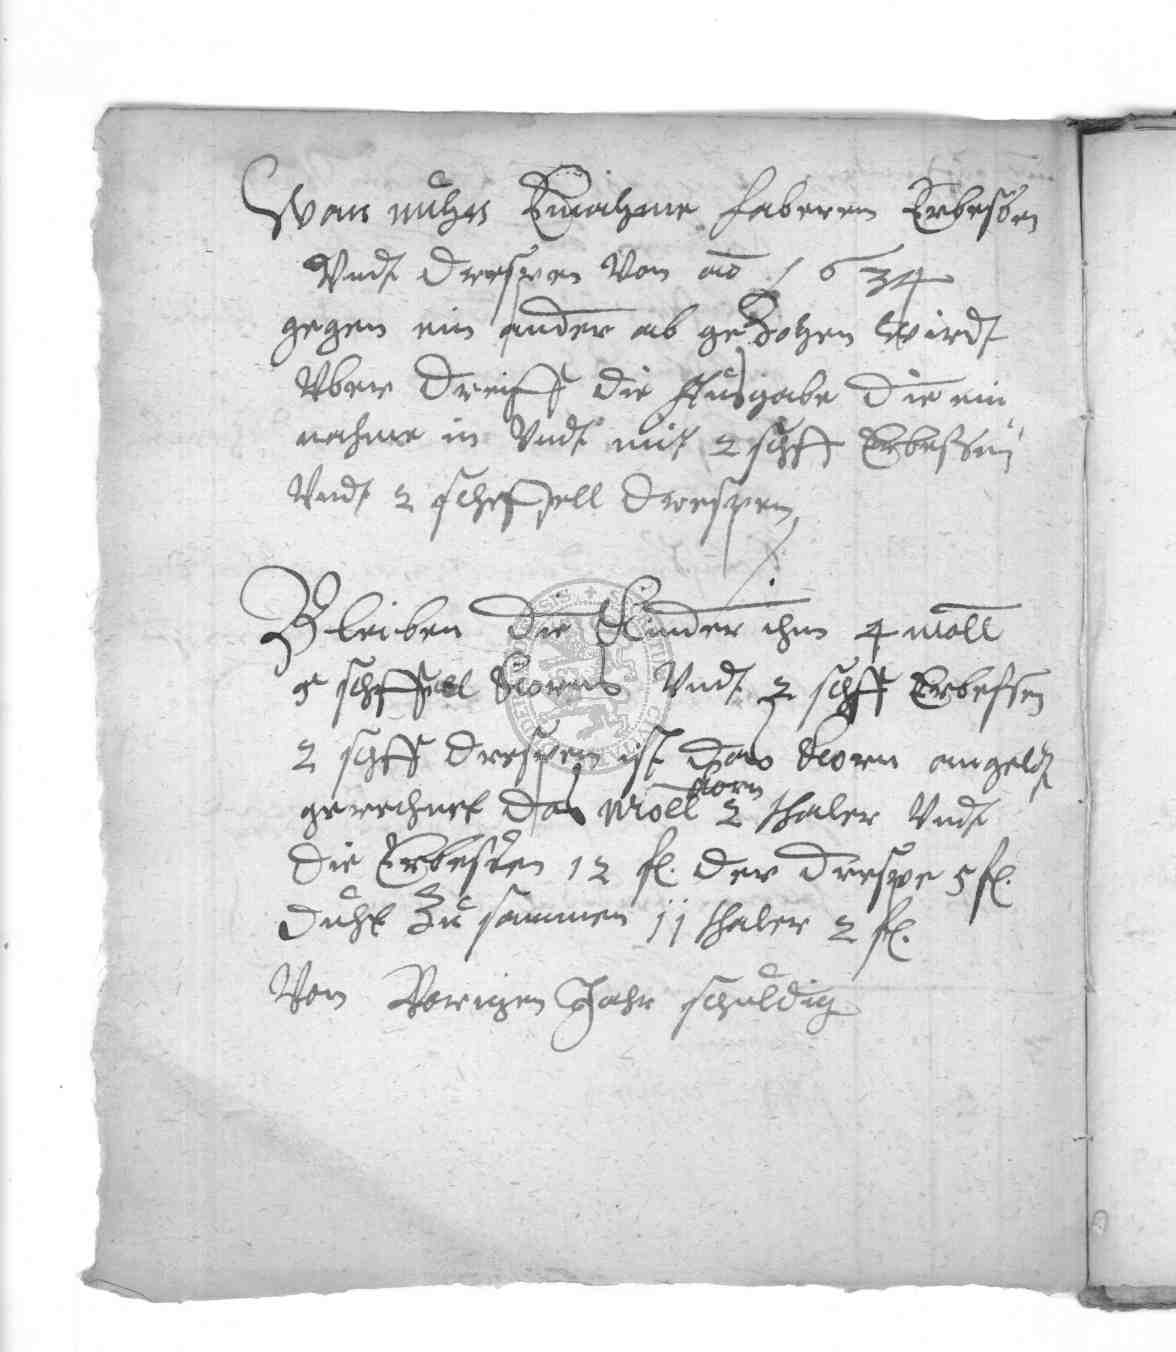 Wan nuhn Einahme haberen Erbessen
Vndt Drespen Von ao 1634
gegen ein ander ab gezohen wirdt
Vber Treifft die Ausgabe die ein
nahme in Vndt mit 2 schff Erbessen
Vndt 2 scheffell Drespen
Bleiben die Kinder ihm 4 moll
5 scheffell Korns Vndt 2 schff Erbessen
2 schff Drespen ist das Korn angeldt
gerechnet das Moll Korn 2 thaler Vndt
die Erbessen 12 fl. der Drespe 5 fl.
Duht Zu sammen 11 thaler 2 fl.
Von Vorigen Jahr schuldig